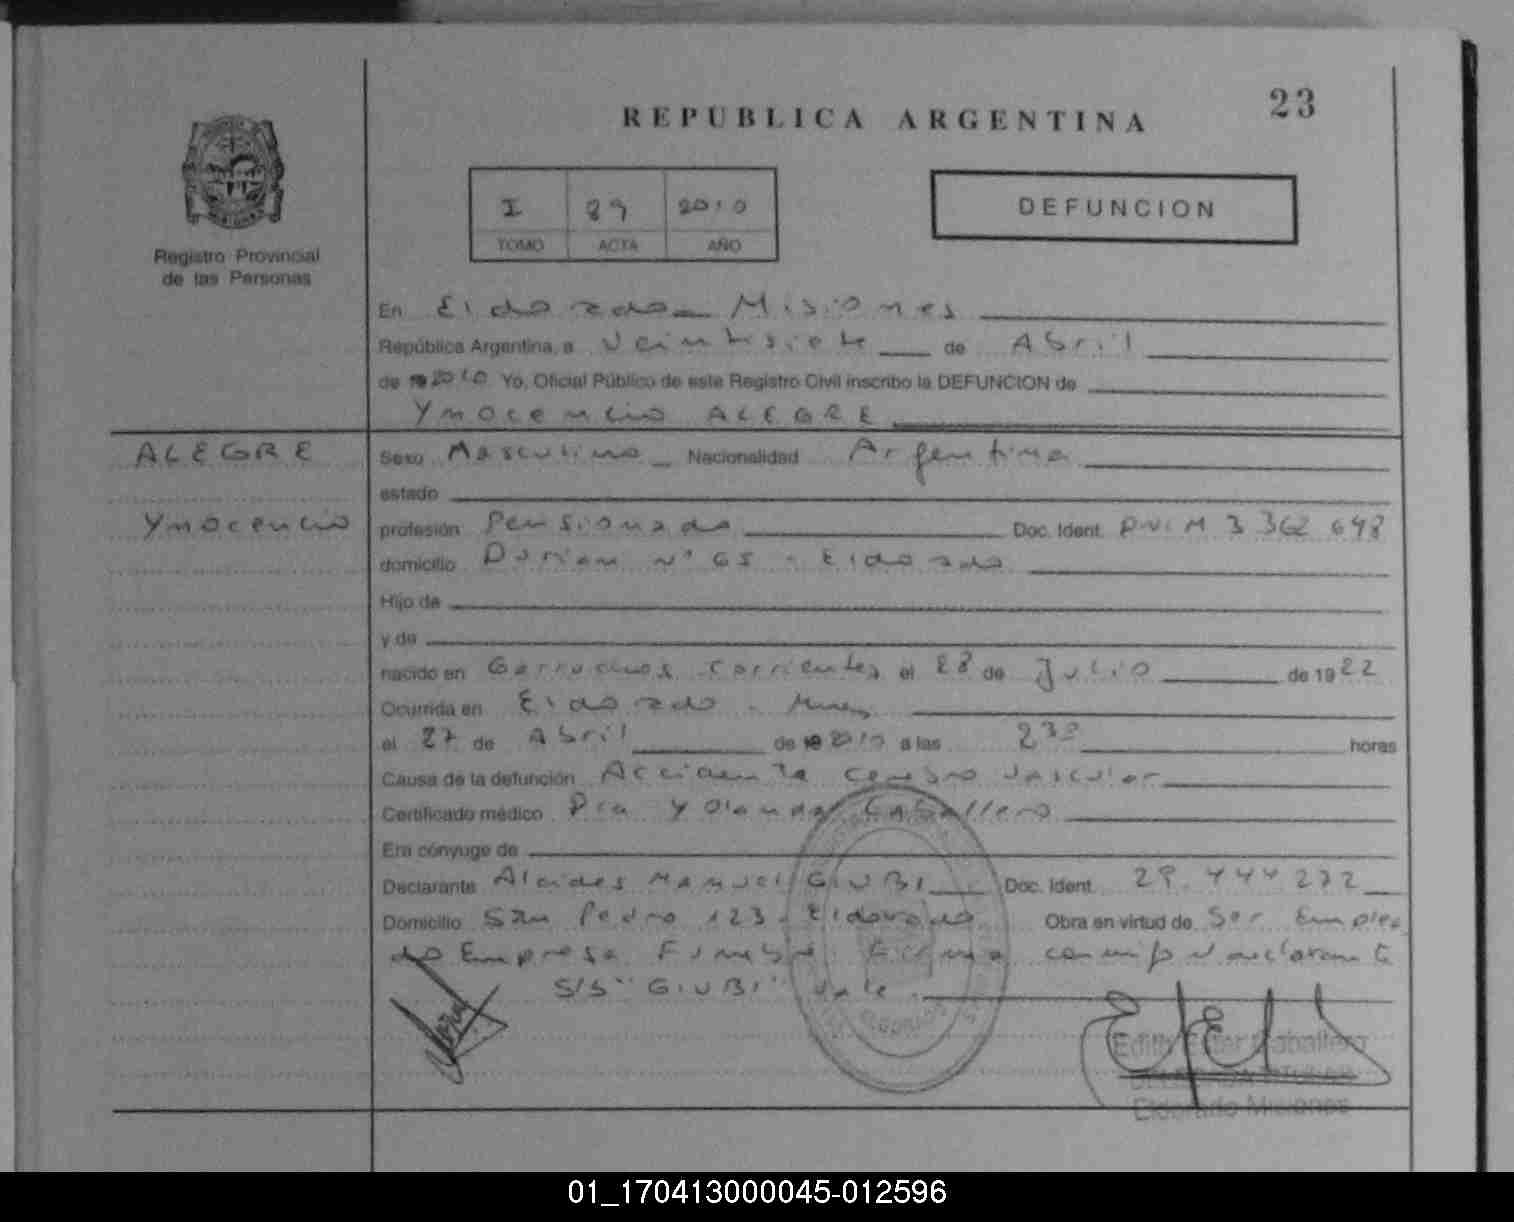 23
REPUBLICA ARGENTINA
I 89 2010
TOMO ACTA AÑO
DEFUNCION
Registro Provincial
de las Personas
En Eldorado Misiones
República Argentina, a Veintisiete de Abril
de 2010 Yo, Oficial Público de este Registro Civil inscribo la DEFUNCION de
Ynocencio ALEGRE
ALEGRE
Ynocencio
Sexo Masculino Nacionalidad Argentina
estado
profesión Pensionado Doc. Ident. DNI M 3 362 648
domicilio nº 65 - Eldorado
Hijo de
y de
nacido en Garruchos Corrientes el 28 de Julio de 1922
Ocurrida en Eldorado - Mnes
el 27 de Abril de 2010 a las horas
Causa de la defunción Accidente cerebro vascular
Certificado médico Dra Yolanda Caballero
Era cónyuge de
Declarante Alcides Manuel GIUBI Doc. Ident. 29.444 272
Domicilio San Pedro 123 - Eldorado Obra en virtud de Ser Emplea
do Empresa Funebre Firma conmigo el declarante
S/S "GIUBI" Vale
Edith Ester Caballero
Eldorado Misiones
01_170413000045-012596